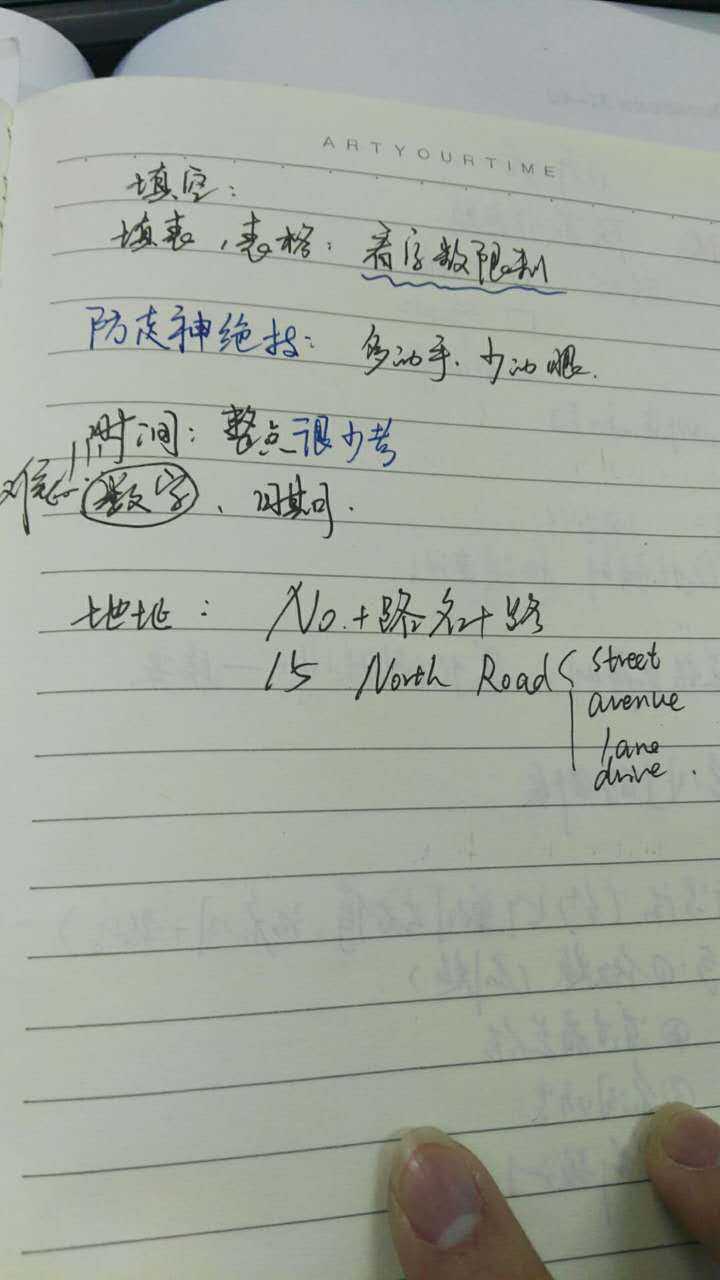 ARTYOURTIME
填空：
填表，表格：看字数限制
防走神绝技：多动手、少动眼.
时间：整点很少考
难点：数字、日期.
地址：No.+路名+路
15 North Road street
avenue
lane
drive.